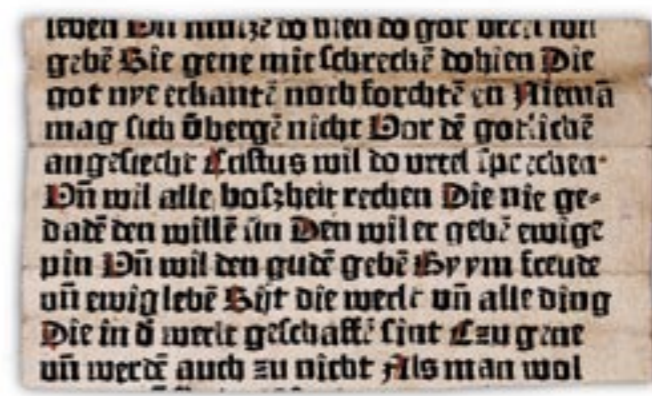 leben Vn̄ nutzē do hien do got orteil wil
gebē Sie gene mit schreckē dohien Die
got nye erkantē noch forchtē en Niemā
mag sich v̄bergē nicht Vor dē gotlichē
angesiecht Cristus wil do vrteil sprechen·
Vn̄ wil alle boszheit rechen Die nie ge-
dadē den willē sin Den wil er gebē ewige
pin Vn̄ wil den gudē gebē By ym freude
vn̄ ewig lebē Sijt die werlt vn̄ alle ding
Die in d̄ werlt geschaffē sint Czu gene
vn̄ werdē auch zu nicht Als man wol